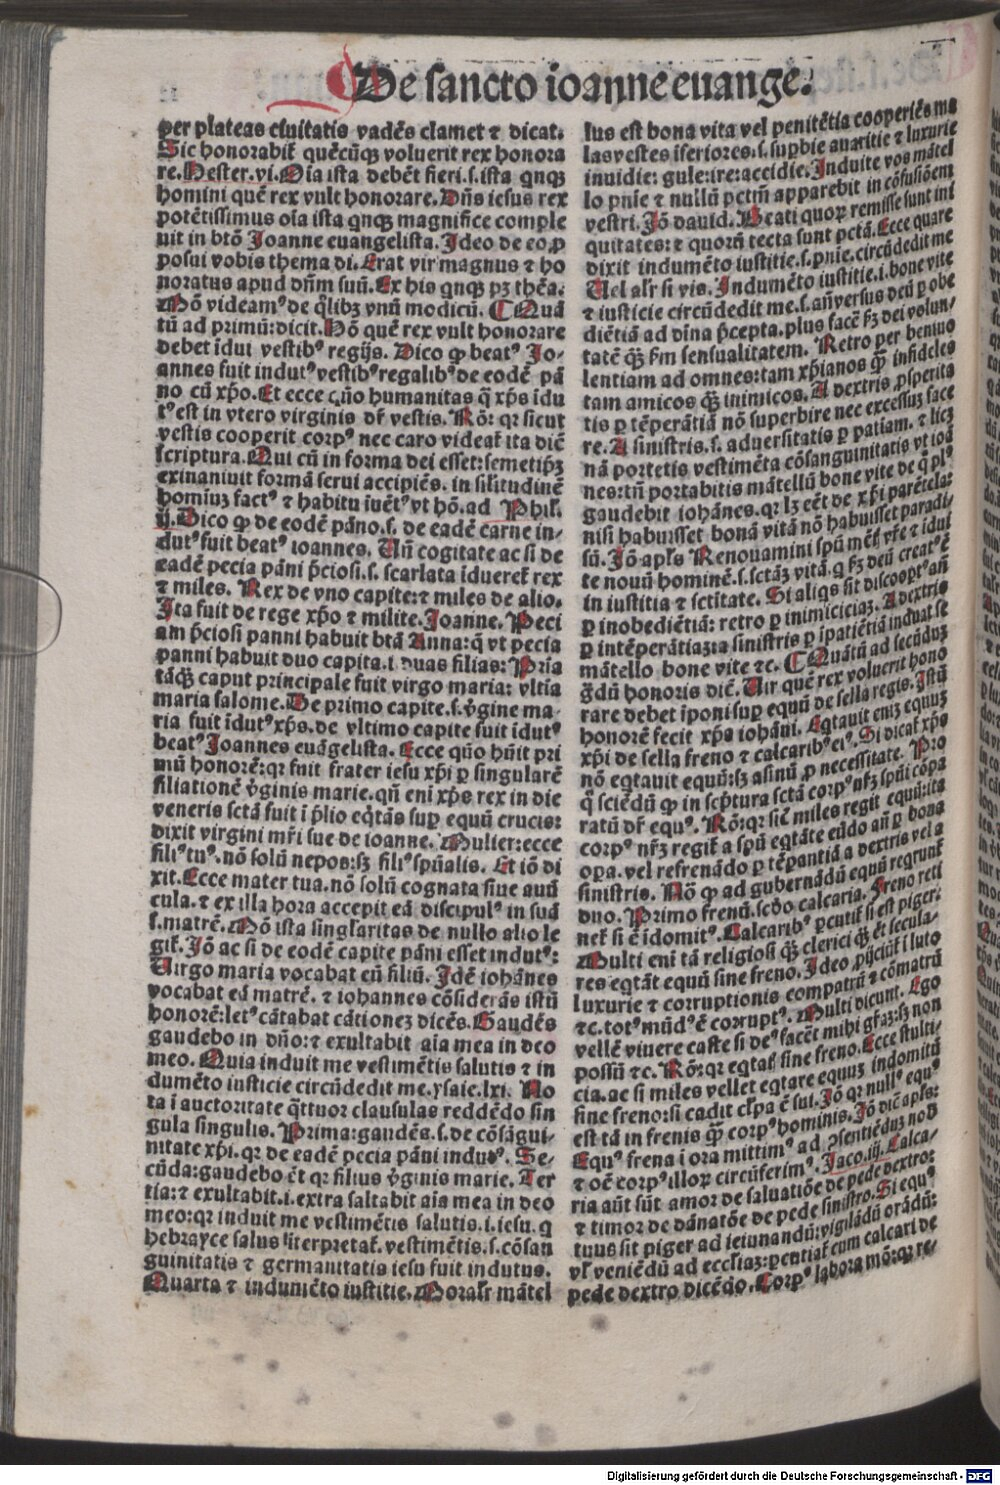 De sancto ioanne euange.
per plateas ciuitatis vadēs clamet ⁊ dicat.
Sic honorabit̄ quēcūqꝫ voluerit rex honora
re. Hester. vi. Oīa ista debēt fieri. s. ista qnqꝫ
homini quē rex vult honorare. Dn̄s iesus rex
potētissimus oīa ista qnqꝫ magnifice comple
uit in btō Joanne euangelista. Jdeo de eo ꝓ
posui vobis thema di. Erat vir magnus ⁊ ho
noratus apud dn̄m suū. Ex his qnqꝫ pꝫ thēa.
Mō videamꝰ de qͥlibꝫ vnū modicū. ¶ Quā
tū ad primū: dicit. Hō quē rex vult honorare
debet īdui vestibꝰ regijs. Dico ꝙ beatꝰ Jo-
annes fuit indutꝰ vestibꝰ regalibꝰ de eodē pā
no cū xp̄o. Et ecce quō humanitas q̄ xp̄s īdu
tꝰ est in vtero virginis dr̄ vestis. Rō: qr sicut
vestis cooperit corpꝰ nec caro videat̄ ita dic̄
scriptura. Qui cū in forma dei esset: semetipꝫ
exinaniuit formā serui accipiēs. in sil̄itudinē
hominꝫ factꝰ ⁊ habitu iuētꝰ vt hō. ad Phil̄.
ij. Dico ꝙ de eodē pāno. s. de eadē carne in-
dutꝰ fuit beatꝰ ioannes. Un̄ cogitate ac si de
eadē pecia pāni p̄ciosi. s. scarlata īdueret̄ rex
⁊ miles. Rex de vno capite: ⁊ miles de alio.
Jta fuit de rege xp̄o ⁊ milite. Joanne. Peci
am p̄ciosi panni habuit btā Anna: q̄ vt pecia
panni habuit duo capita. i. duas filias: Pria
tāqꝫ caput principale fuit virgo maria: vltīa
maria salome. De primo capite. s. v̄gine ma-
ria fuit īdutꝰ xp̄s. de vltimo capite fuit īdutꝰ
beatꝰ Joannes euāgelista. Ecce quō hūit pri
mū honorē: qr fuit frater iesu xp̄i ꝑ singularē
filiationē v̄ginis marie. qn̄ eni xp̄s rex in die
veneris sctā fuit ī p̄lio eqͥtās suꝑ equū crucis:
dixit virgini mr̄i sue de ioanne. Mulier: ecce
filiꝰ tuꝰ. nō solū nepos: sꝫ filiꝰ spūalis. Et iō di
xit. Ecce mater tua. nō solū cognata siue auū
cula. ⁊ ex illa hora accepit eā discipulꝰ in suā
s. matrē. Mō ista singl̄aritas de nullo alio le
git̄. Jō ac si de eodē capite pāni esset indutꝰ:
Uirgo maria vocabat eū filiū. Jdē iohānes
vocabat eā matrē. ⁊ iohannes cōsiderās istū
honorē: letꝰ cātabat cātionez dicēs. Gaudēs
gaudebo in dn̄o: ⁊ exultabit aīa mea in deo
meo. Quia induit me vestimētis salutis ⁊ in
dumēto iusticie circūdedit me. ysaie. lxi. No
ta ī auctoritate qͣttuor clausulas reddēdo sin
gula singulis. Prima: gaudēs. s. de cōsāgui-
nitate xp̄i. qr de eadē pecia pāni indutꝰ. Se-
cūda: gaudebo ēt qr filius v̄ginis marie. Ter
tia: ⁊ exultabit. i. extra saltabit aīa mea in deo
meo: qr induit me vestimētis salutis. i. iesu. q
hebrayce salus īterpretat̄. vestimētis. s. cōsan
guinitatis ⁊ germanitatis iesu fuit indutus.
Quarta ⁊ indumēto iustitie. Moral̄r mātel
lus est bona vita vel penitētia cooperiēs ma
las vestes īferiores. s. suꝑbie auaritie ⁊ luxurie
inuidie: gule: ire: accidie. Jnduite vos mātel
lo pnie ⁊ nullū pctm̄ apparebit in cōfusiōem
vestri. Jō dauid. Beati quoꝝ remisse sunt ini
quitates: ⁊ quorū tecta sunt pctā. Ecce quare
dixit indumēto iustitie. s. pnie. circūdedit me
Uel al̄r si vis. Jndumēto iustitie. i. bone vite
⁊ iusticie circūdedit me. s. an̄ versus deū ꝑ obe
diētiā ad dīna p̄cepta. plus facē ẜꝫ dei volun-
tatē qꝫ ẜm sensualitatem. Retro per beniuo
lentiam ad omnes: tam xp̄ianos qꝫ infideles
tam amicos qꝫ inimicos. A dextris ꝓsperita
tis ꝑ tēperātiā nō superbire nec excessus face
re. A sinistris. s. aduersitatis ꝑ patiam. ⁊ licꝫ
nā portetis vestimēta cōsanguinitatis vt ioā
nes: tn̄ portabitis mātellū bone vite de qͦ plꝰ
gaudebit iohānes. qr lꝫ eēt de xp̄i parētela:
nisi habuisset bonā vitā nō habuisset paradi-
sū. Jō apl̄s Renouamini spū mētꝭ vr̄e ⁊ īdui
te nouū hominē. s. sctāꝫ vitā. q ẜꝫ deū creatꝰ ē
in iustitia ⁊ sctītate. Si aliqs sit discooptꝰ an̄
ꝑ inobediētiā: retro ꝑ inimiciciaꝫ. A dextris
ꝑ intēperātiaꝫ: a sinistris ꝑ ipatiētiā induat se
mātello bone vite ⁊c. ¶ Quātū ad secūduꝫ
gͣdū honoris dic̄. Uir quē rex voluerit hono
rare debet īponi suꝑ equū de sella regis. Jstū
honorē fecit xp̄s iohāni. Eqͥtauit eniꝫ equuꝫ
xp̄i de sella freno ⁊ calcaribꝰ eiꝰ. Si dicat̄ xp̄s
nō eqͥtauit equū: sꝫ asinū ꝓ necessitate. Pro
qͥ sciēdū ꝙ in scp̄tura sctā corpꝰ nr̄ꝫ spūi cōpa
ratū dr̄ equꝰ. Rō: qr sic̄ miles regit equū: ita
corpꝰ nr̄ꝫ regit̄ a spū eqͥtāte eūdo an̄ ꝑ bona
opa. vel refrenādo ꝑ tēꝑantiā a dextris vel a
sinistris. Nō ꝙ ad gubernādū equū reqrunt̄
duo. Primo frenū. scdo calcaria. Freno reti
net̄ si ē īdomitꝰ. Calcaribꝰ pcutit̄ si est piger:
Multi eni tā religiosi qꝫ clerici qꝫ ēt secula-
res eqͥtāt equū sine freno. Jdeo ꝓijciūt̄ ī luto
luxurie ⁊ corruptionis compatrū ⁊ cōmatrū
⁊c. totꝰ mūdꝰ ē corruptꝰ. Multi dicunt. Ego
vellē viuere caste si deꝰ facēt mihi gr̄aꝫ: sꝫ non
possū ⁊c. Rō: qr eqͥtas sine freno. Ecce stulti-
cia. ac si miles vellet eqͥtare equuꝫ indomitū
sine freno: si cadit cl̄pa ē sui. Jō qr nullꝰ equꝰ
est tā in frenis qꝫ corpꝰ hominis. Jō dic̄ apl̄s:
Equꝰ frena ī ora mittimꝰ ad ꝯsentiēduꝫ nob̄
⁊ oē corpꝰ illoꝝ circūferimꝰ. Jaco. iij. Calca-
ria aūt sūt amor de saluatiōe de pede dextro:
⁊ timor de dānatōe de pede sinistro. Si equꝰ
tuus sit piger ad ieiunandū: vigilādū orādū:
vl̄ veniēdū ad eccl̄iaꝫ: pcutiat̄ cum calcari de
pede dextro dicēdo. Corpꝰ labora mō: qr re-
Digitalisierung gefördert durch die Deutsche Forschungsgemeinschaft - DFG